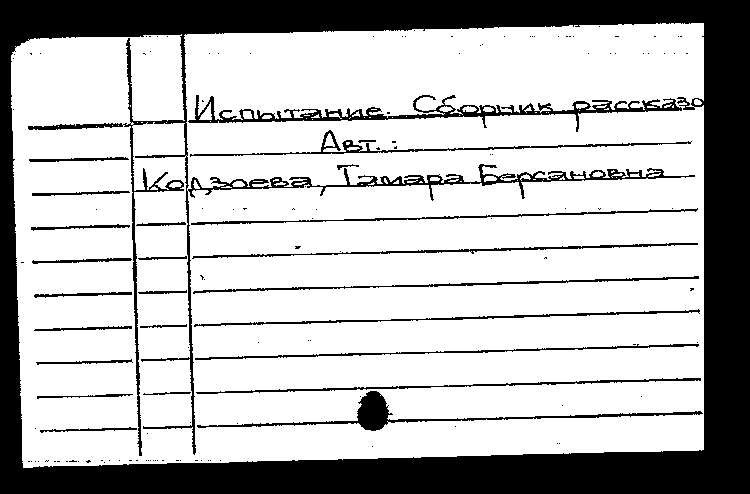 Испытание. Сборник рассказо
Авт.:
Кодзоева, Тамара Берсановна